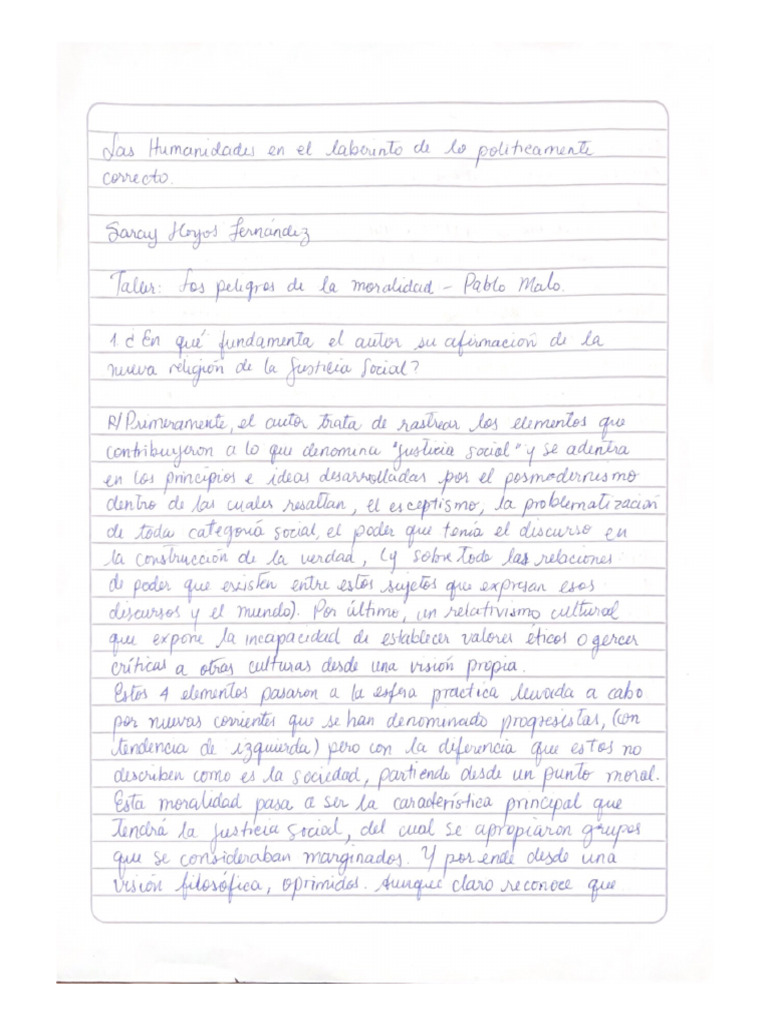 Las Humanidades en el laberinto de lo políticamente
correcto.
Saray Hoyos Fernández
Taller: Los peligros de la moralidad - Pablo Malo.
1. ¿En qué fundamenta el autor su afirmación de la
nueva religión de la Justicia Social?
R/ Primeramente, el autor trata de rastrear los elementos que
contribuyeron a lo que denomina "justicia social" y se adentra
en los principios e ideas desarrolladas por el posmodernismo
dentro de las cuales resaltan, el esceptismo, la problematización
de toda categoría social, el poder que tenía el discurso en
la construcción de la verdad, (y sobre todo las relaciones
de poder que existen entre estos sujetos que expresan esos
discursos y el mundo). Por último, un relativismo cultural
que expone la incapacidad de establecer valores éticos o gercer
críticas a otras culturas desde una visión propia.
Estos 4 elementos pasaron a la esfera practica llevada a cabo
por nuevas corrientes que se han denominado progresistas, (con
tendencia de izquierda) pero con la diferencia que estos no
describen como es la sociedad, partiendo desde un punto moral.
Esta moralidad pasa a ser la característica principal que
tendrá la justicia social, del cual se apropiaron grupos
que se consideraban marginados. Y por ende desde una
visión filosófica, oprimidos. Aunque claro reconoce que